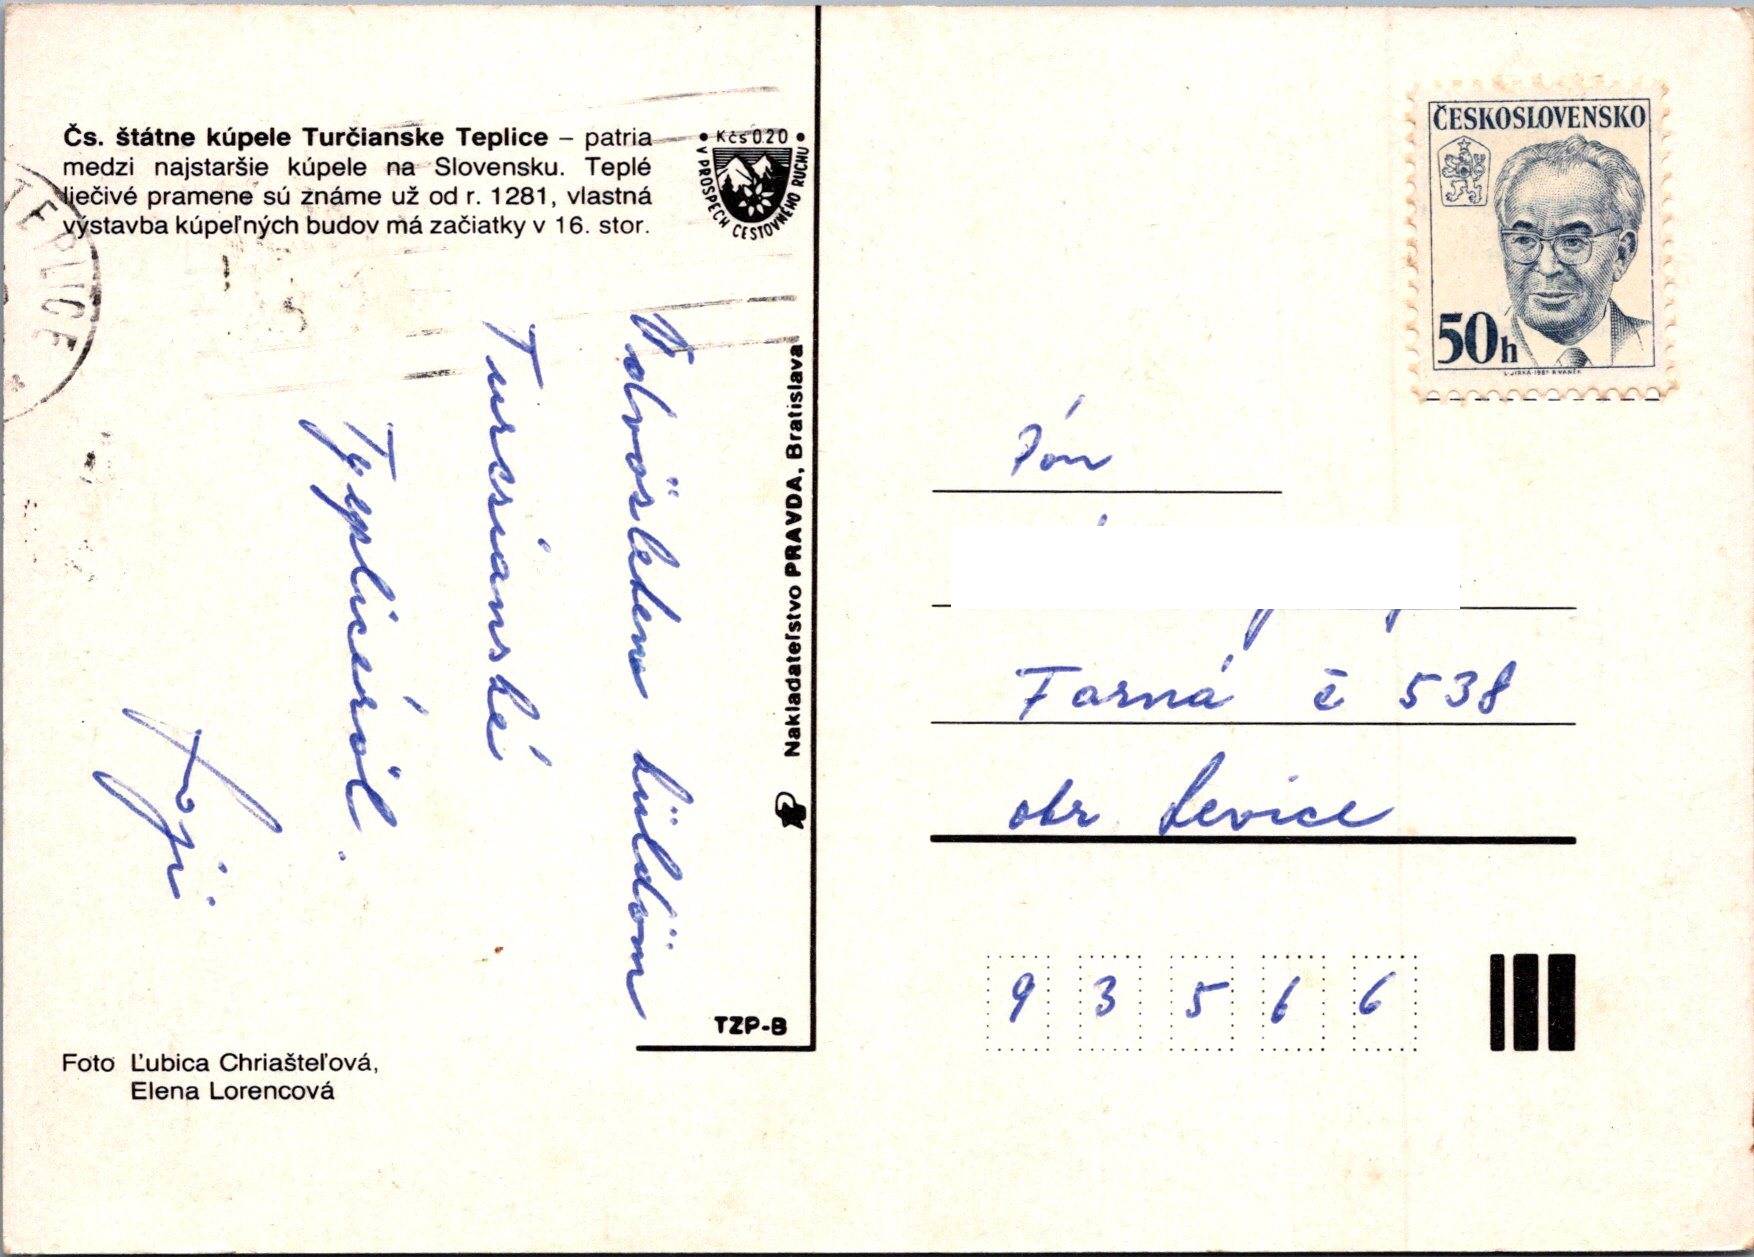 Čs. štátne kúpele Turčianske Teplice – patria
medzi najstaršie kúpele na Slovensku. Teplé
liečivé pramene sú známe už od r. 1281, vlastná
výstavba kúpeľných budov má začiatky v 16. stor.
TEPLICE
• Kčs 0.20 •
V PROSPECH CESTOVNÉHO RUCHU
Üdvözletem küldöm
Turcsianské
Tyeplicéröl.
Nakladateľstvo PRAVDA, Bratislava
TZP-B
Foto Ľubica Chriašteľová,
Elena Lorencová
ČESKOSLOVENSKO
50h
Pán
Farná č 538
okr Levice
93566